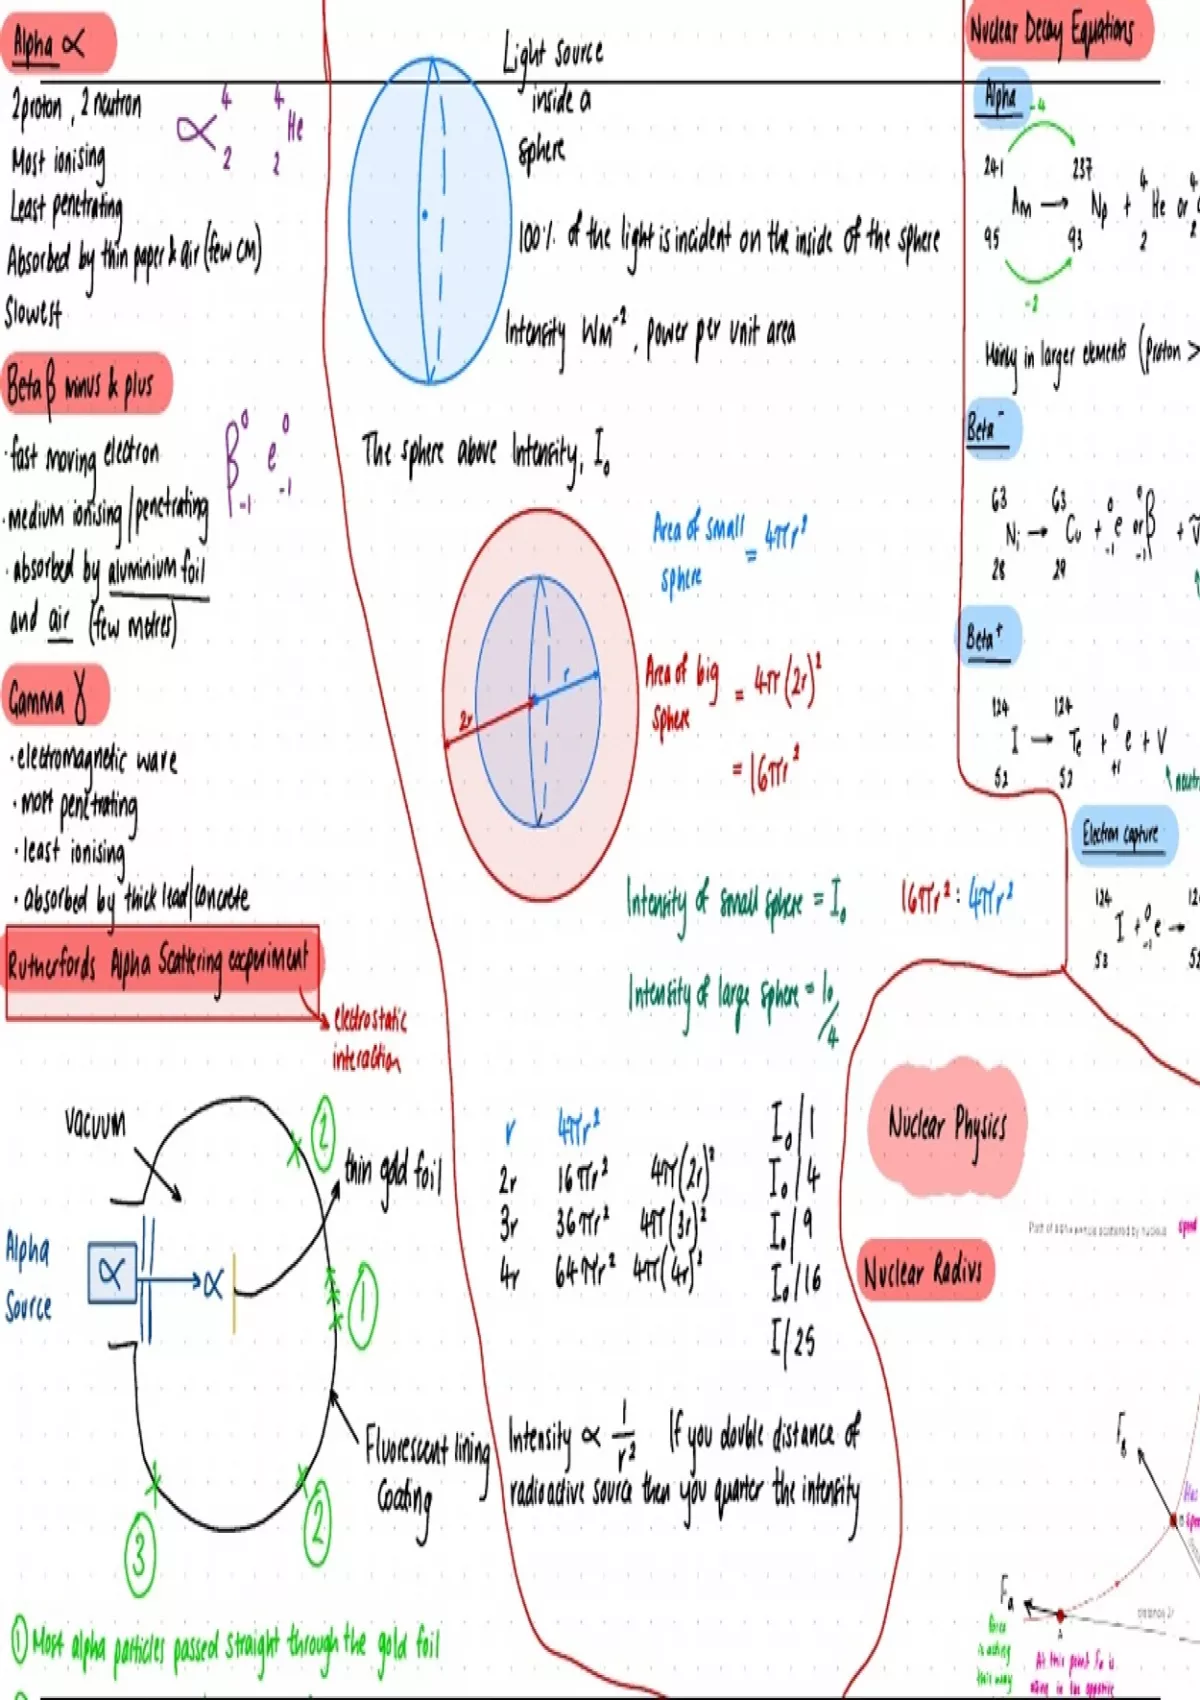 Alpha ∝
2 proton, 2 neutron
∝ 4 2
4 2 He
Most ionising
Least penetrating
Absorbed by thin paper & air (few cm)
Slowest
Beta β minus & plus
· fast moving electron
β 0 -1
e 0 -1
· medium ionising/penetrating
· absorbed by aluminium foil
and air (few metres)
Gamma γ
· electromagnetic wave
· most penetrating
· least ionising
· absorbed by thick lead/concrete
Rutherfords Alpha Scattering experiment
electrostatic
interaction
vacuum
2
thin gold foil
Alpha
Source
∝
∝
1
Fluorescent lining
Coating
3
2
① Most alpha particles passed straight through the gold foil
Light source
inside a
sphere
100% of the light is incident on the inside of the sphere
Intensity Wm⁻², power per unit area
The sphere above Intensity, I₀
Area of small
sphere
= 4πr²
r
2r
Area of big
sphere
= 4π(2r)²
= 16πr²
Intensity of small sphere = I₀
16πr² : 4πr²
Intensity of large sphere = I₀/4
r 4πr² I₀/1
2r 16πr² 4π(2r)² I₀/4
3r 36πr² 4π(3r)² I₀/9
4r 64πr² 4π(4r)² I₀/16
I/25
Intensity ∝ 1/r² If you double distance of
radioactive source then you quarter the intensity
Nuclear Decay Equations
Alpha
-4
241 237 4 4
Am → Np + He or
95 93 2 2
-2
Mainly in larger elements (Proton >
Beta⁻
63 63 0 0
Ni → Cu + e or β + v̄
28 29 -1 -1
Beta⁺
124 124 0
I → Te + e + V
53 52 +1
Electron capture
124 0
I + e →
53 -1
Nuclear Physics
Path of alpha particle scattered by nucleus
speed
Nuclear Radius
F
Has
Fa
distance 2r
A
force
is acting
this way
At this point Fa is